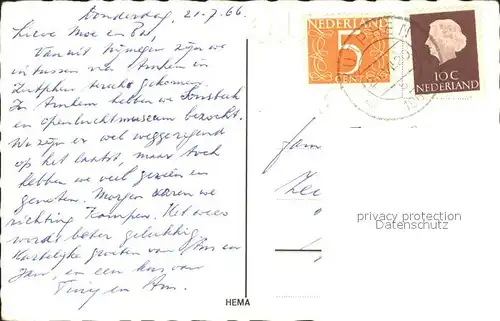 Donderdag, 21-7.66
Lieve Moe en Pa,
Vanuit Nijmegen zijn we
intussen via Arnhem in
Zutphen terecht gekomen.
In Arnhem hebben we Sonsbeek
en openluchtmuseum bezocht.
We zijn er wel weggeregend
op het laatst, maar toch
hebben we veel gezien en
genoten. Morgen varen we
richting Kampen. Het weer
wordt beter gelukkig
Hartelijke groeten van
Jam, en een kus van
en
HEMA
NEDERLAND
5
CENT
10 C
NEDERLAND
ZUTPHEN
fam
privacy protection
Datenschutz